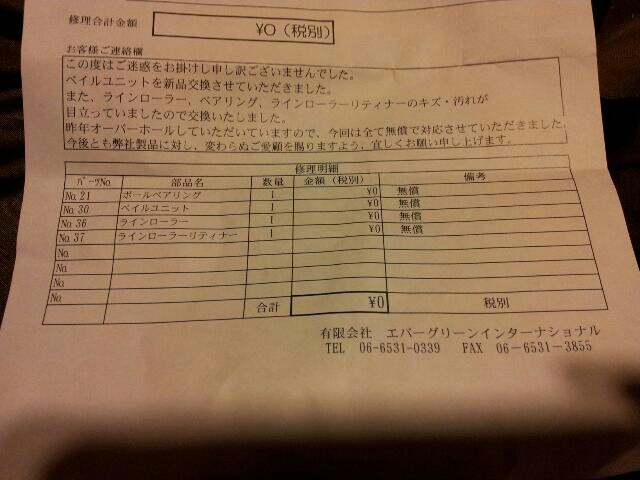 修理合計金額 ¥0（税別）
お客様ご連絡欄
この度はご迷惑をお掛けし申し訳ございませんでした。
ベイルユニットを新品交換させていただきました。
また、ラインローラー、ベアリング、ラインローラーリティナーのキズ・汚れが
目立っていましたので交換いたしました。
昨年オーバーホールしていただいていますので、今回は全て無償で対応させていただきました。
今後とも弊社製品に対し、変わらぬご愛顧を賜りますよう、宜しくお願い申し上げます。
修理明細
ﾊﾟｰﾂNo 部品名 数量 金額（税別） 備考
No.21 ボールベアリング 1 ¥0 無償
No.30 ベイルユニット 1 ¥0 無償
No.36 ラインローラー 1 ¥0 無償
No.37 ラインローラーリティナー 1 ¥0 無償
No.
No.
No.
No.
合計 ¥0 税別
有限会社 エバーグリーンインターナショナル
TEL 06-6531-0339 FAX 06-6531-3855